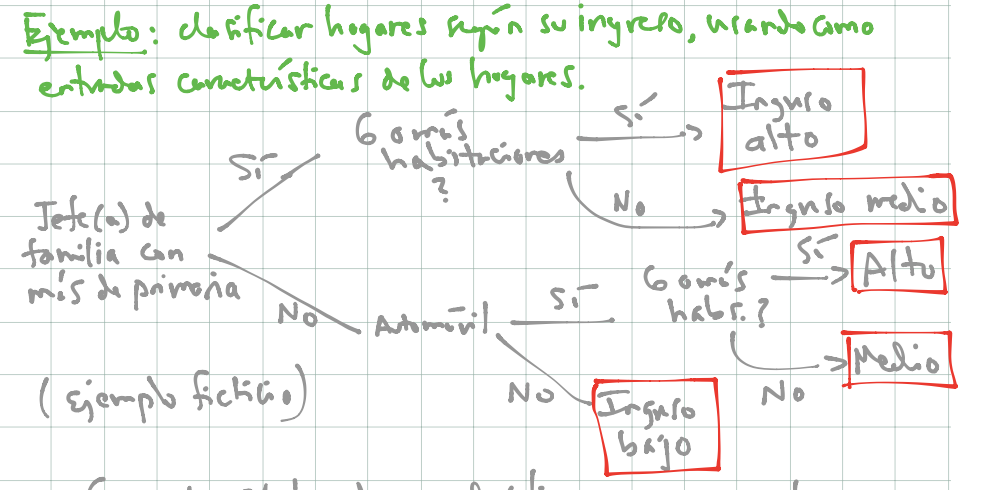 Ejemplo: clasificar hogares según su ingreso, usando como
entradas características de los hogares.
Jefe(a) de
familia con
más de primaria
Sí
6 o más
habitaciones
?
Sí
Ingreso
alto
No
Ingreso medio
No
Automóvil
Sí
6 o más
habs.?
Sí
Alto
No
Medio
No
Ingreso
bajo
(Ejemplo ficticio)